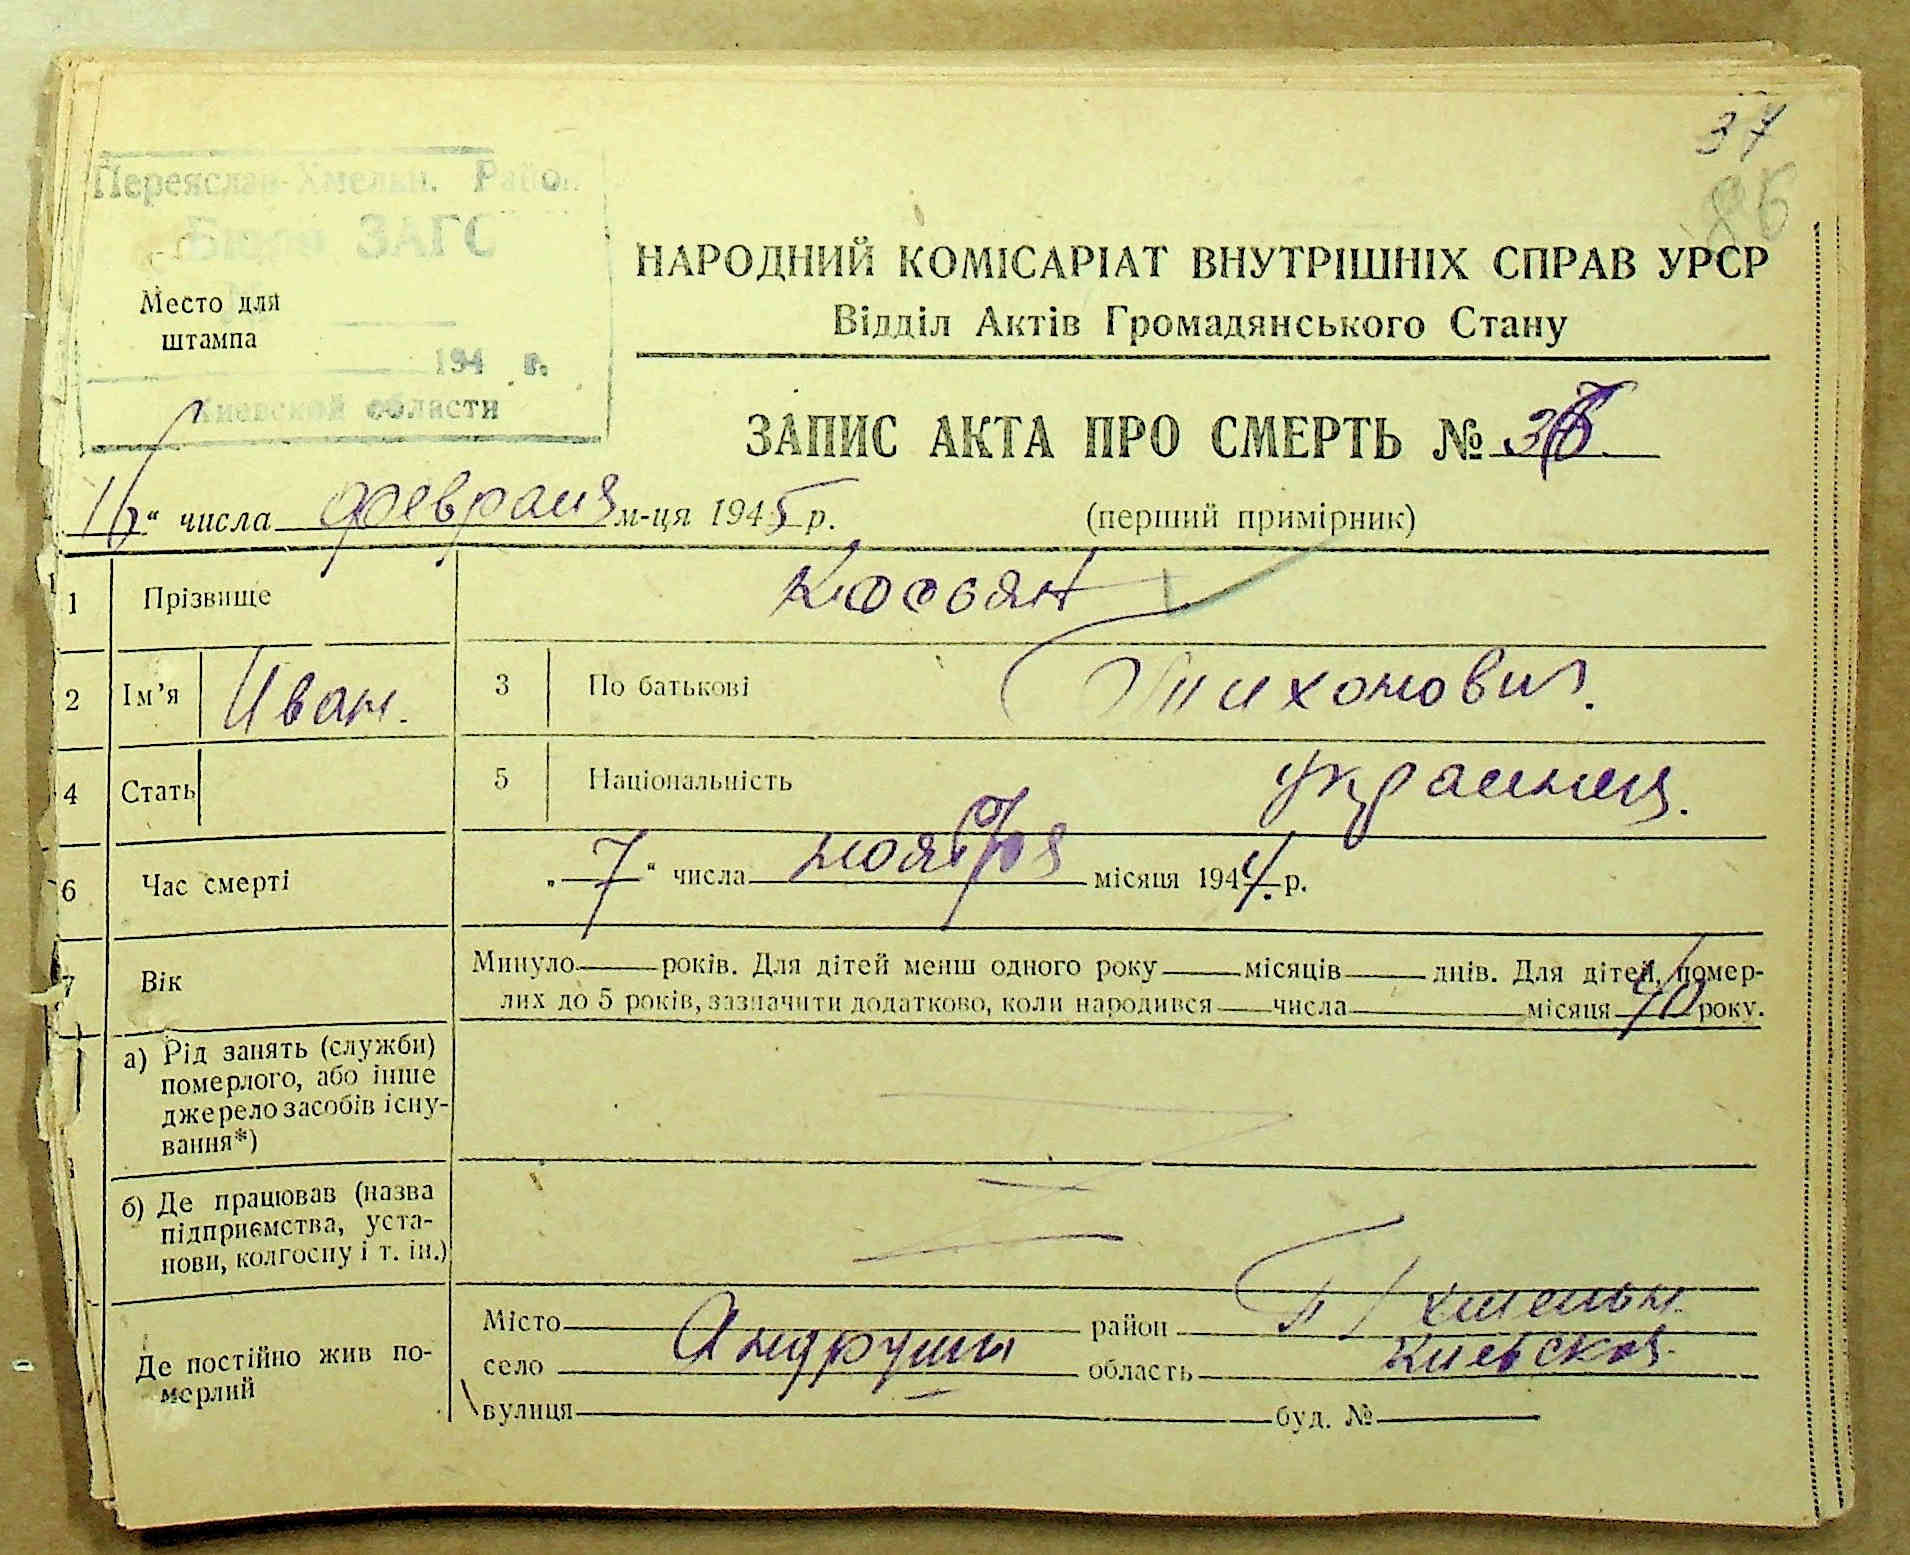 37
86
Переяслав-Хмельн. Район.
Бюро ЗАГС
Место для
штампа
194 г.
Киевской области
НАРОДНИЙ КОМІСАРІАТ ВНУТРІШНІХ СПРАВ УРСР
Відділ Актів Громадянського Стану
ЗАПИС АКТА ПРО СМЕРТЬ №
16“ числа февраля м-ця 1945 р. (перший примірник)
1 Прізвище Косьян
2 Ім’я Иван. 3 По батькові Тихонович.
4 Стать 5 Національність украинец.
6 Час смерті „7“ числа ноября місяця 1944 р.
7 Вік Минуло років. Для дітей менш одного року місяців днів. Для дітей, помер-
лих до 5 років, зазначити додатково, коли народився числа місяця року.
а) Рід занять (служби)
померлого, або інше
джерело засобів існу-
вання*)
б) Де працював (назва
підприємства, уста-
нови, колгоспу і т. ін.)
Де постійно жив по-
мерлий
Місто район П/Хмельн.
село Андруши область Киевская.
вулиця буд. №